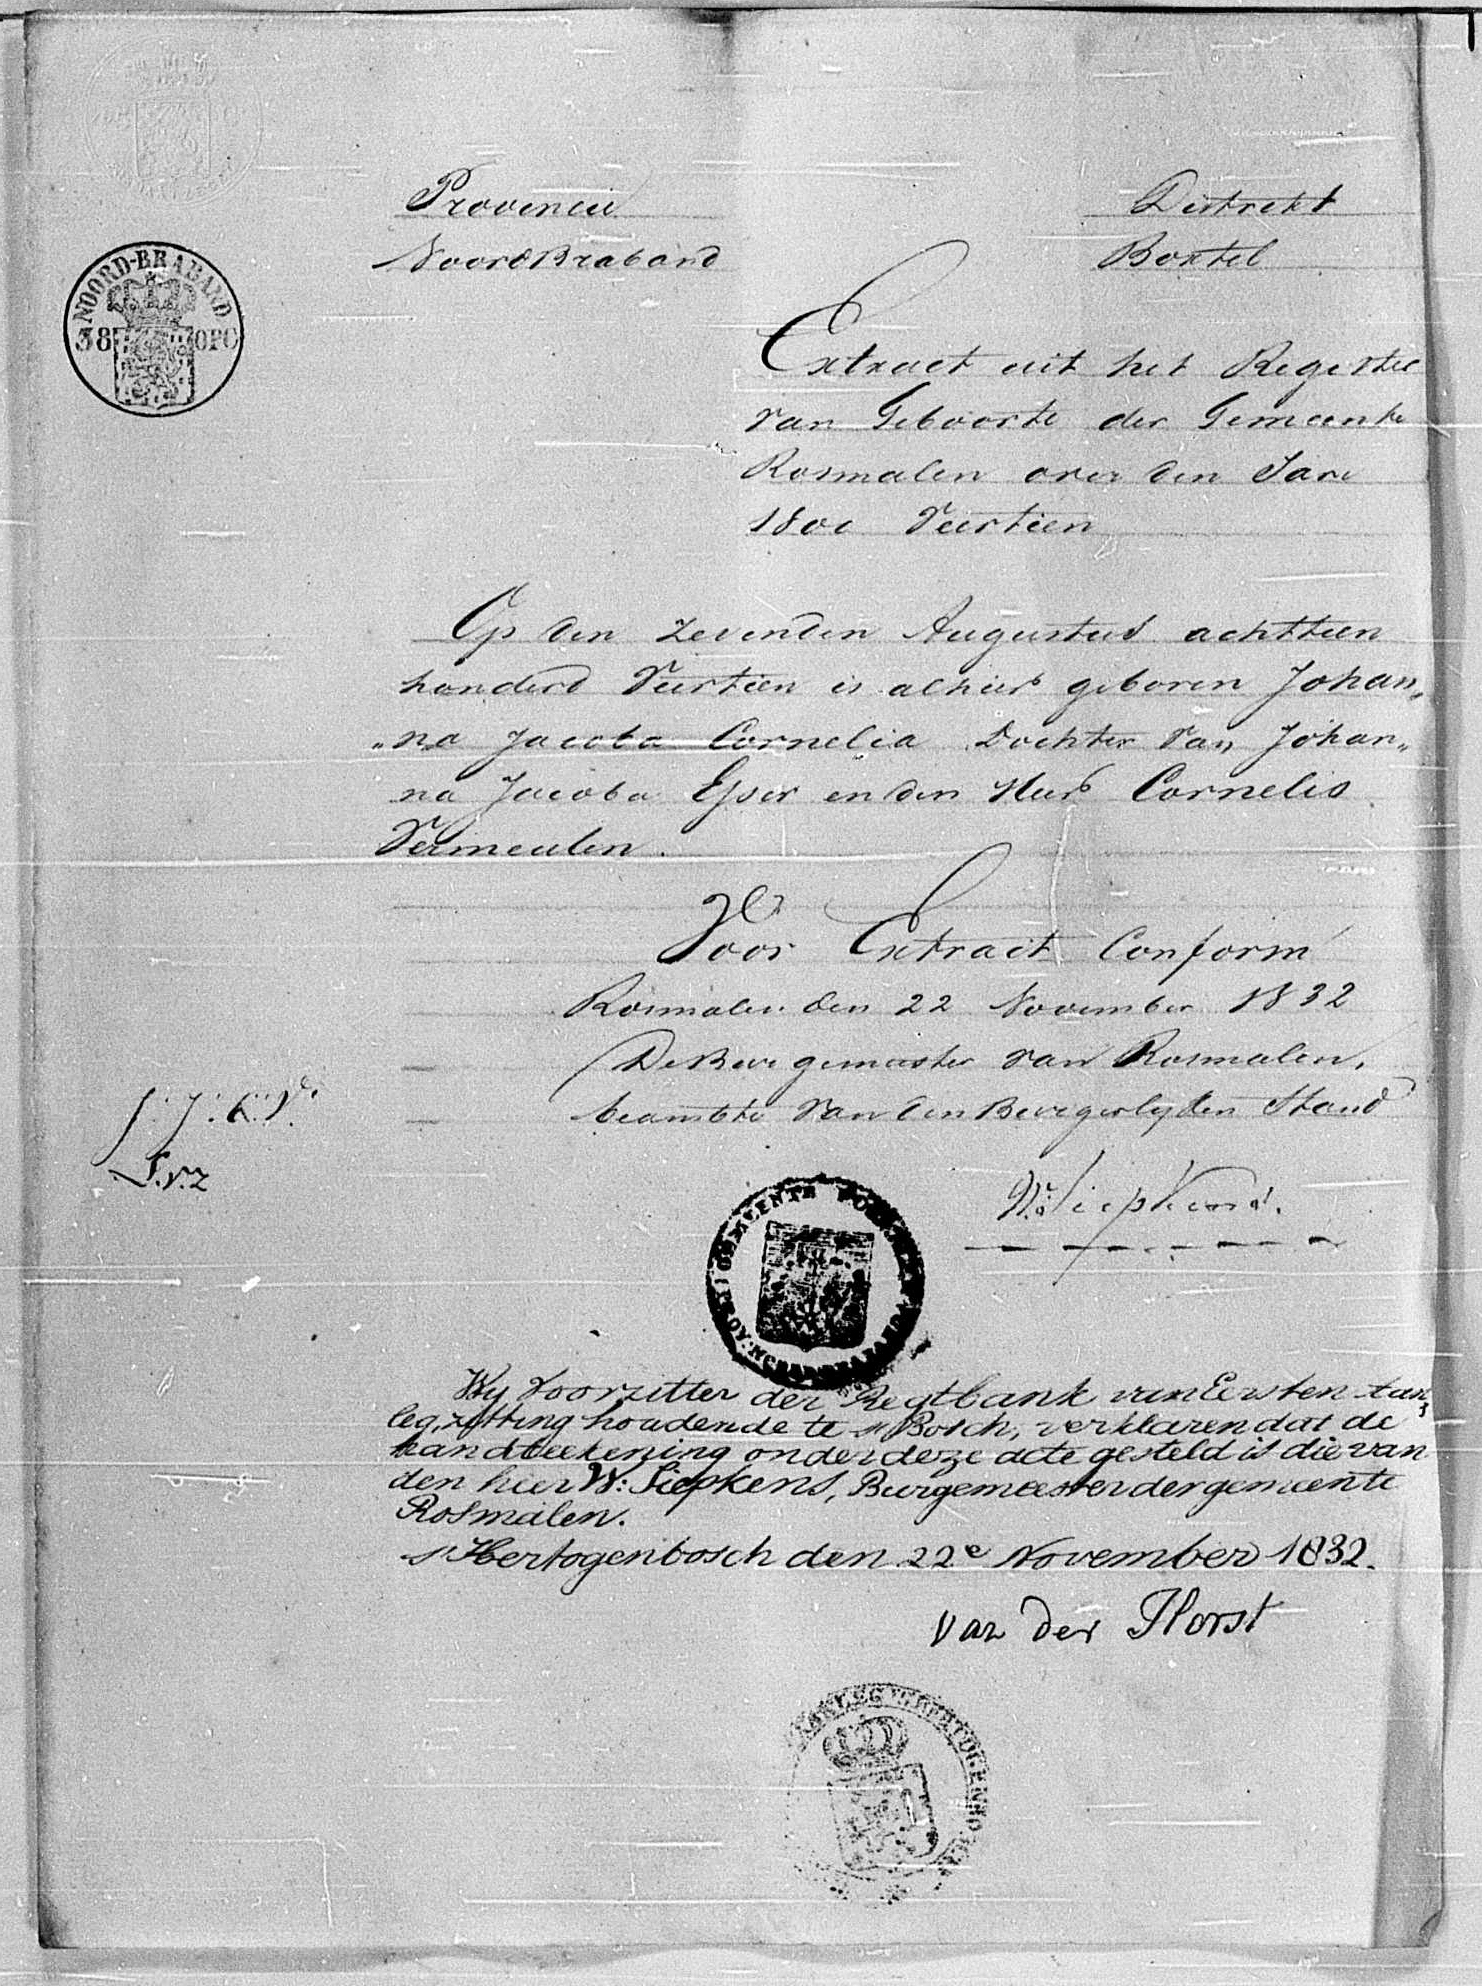 Provincie
Noord Braband
Distrekt
Boxtel
NOORD-BRABAND
38 OPC
Extract uit het Register
van Geboorte der Gemeente
Rosmalen over den Jare
1800 Veertien
Op den zevenden Augustus achttien
honderd Veertien is alhier geboren Johan„
„na Jacoba Cornelia Dochter van Johan„
na Jacoba Esser en den Heer Cornelis
Vermeulen.
Voor Extract Conform
Rosmalen den 22 November 1832
De Burgemeester van Rosmalen,
beambte van den Burgerlyken Stand
W. Siepkens.
GEMEENTE
Wy Voorzitter der Regtbank van Eersten Aan
leg, zitting houdende te 's Bosch, verklaren dat de
handteekening onder deze acte gesteld is die van
den heer W: Siepkens, Burgemeester der gemeente
Rosmalen.
's Hertogenbosch den 22e November 1832.
van der Horst